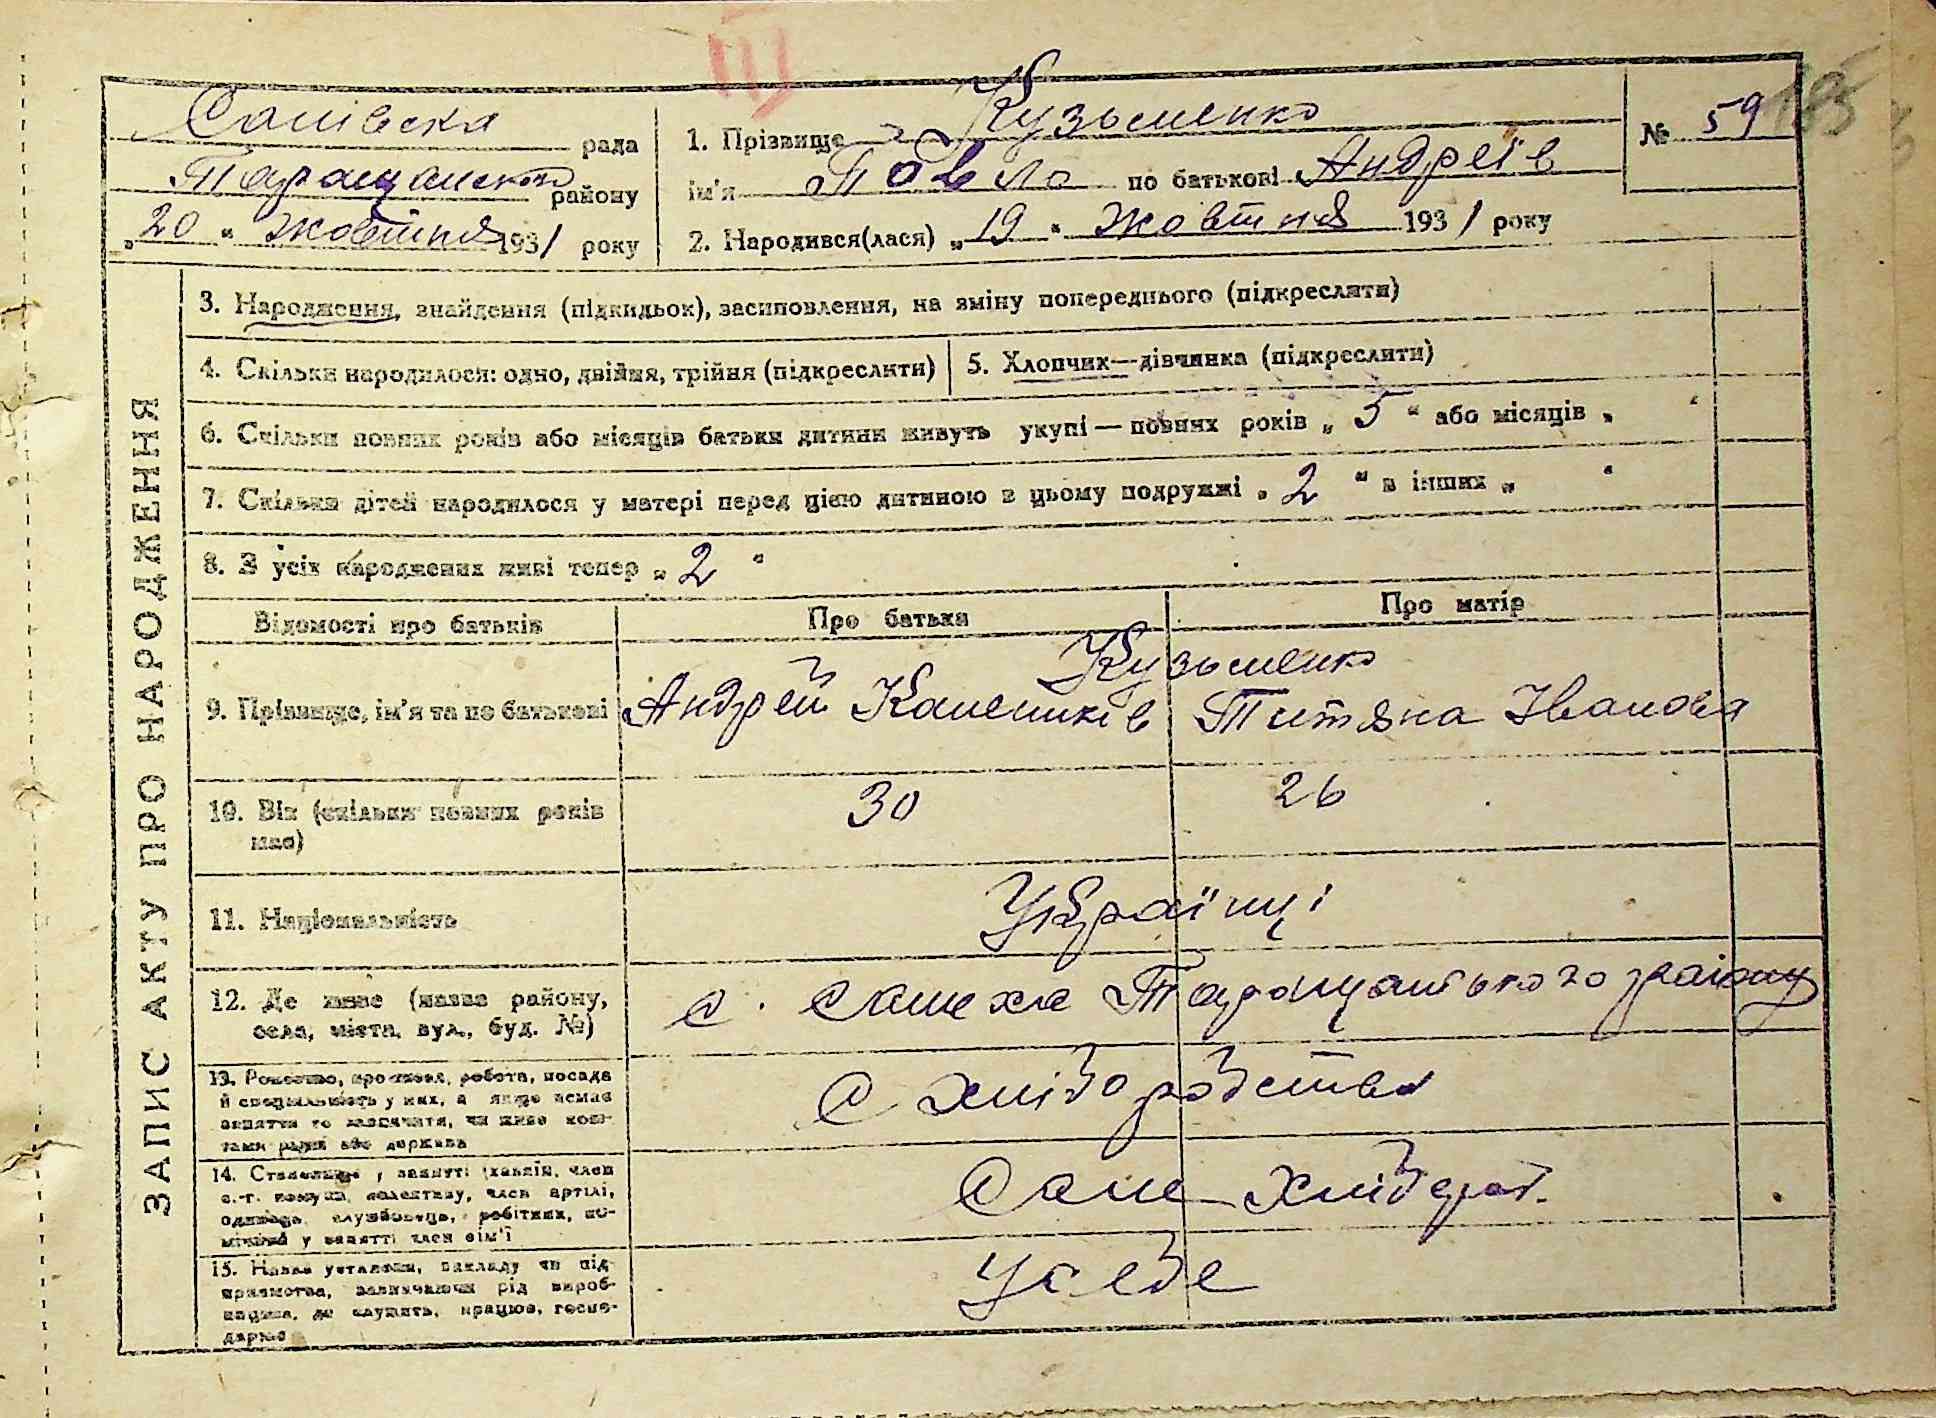 Салівска рада
Таращанского району
„20“ жовтня 1931 року
1. Прізвище Кузьменко
ім'я Павло по батькові Андреїв
2. Народився(лася) „19“ жовтня 1931 року
№ 59
ЗАПИС АКТУ ПРО НАРОДЖЕННЯ
3. Народження, знайдення (підкидьок), засиповлення, на зміну попереднього (підкреслити)
4. Скільки народилося: одно, двійня, трійня (підкреслити)
5. Хлопчик—дівчинка (підкреслити)
6. Скільки повних років або місяців батьки дитини живуть укупі — повних років „5“ або місяців „ “
7. Скільки дітей народилося у матері перед цією дитиною в цьому подружжі „2“ в інших „ “
8. З усіх народжених живі тепер „2“
Відомості про батьків
Про батька
Про матір
9. Прізвище, ім'я та по батькові
Кузьменко
Андрей
Титяна Іванова
10. Вік (скільки повних років
має)
30
26
11. Національність
Українці
12. Де живе (назва району,
села, міста, вул., буд. №)
с. Таращанського району
13. робота, посада
й спеціяльність у них, а якще немає
заняття то зазначити, чи живе кош-
тами рідні або держави
хлібородство
14. Становище у занятті (хазяїн, член
с.-г. комуни, колективу, член артілі,
одинець, службовець, робітник, по-
мічний у занятті член сім'ї
Сам хлібороб.
15. Назва установи, закладу чи під-
приємства, зазначаючи рід вироб-
ництва, де служить, працює, госпо-
дарює
У себе